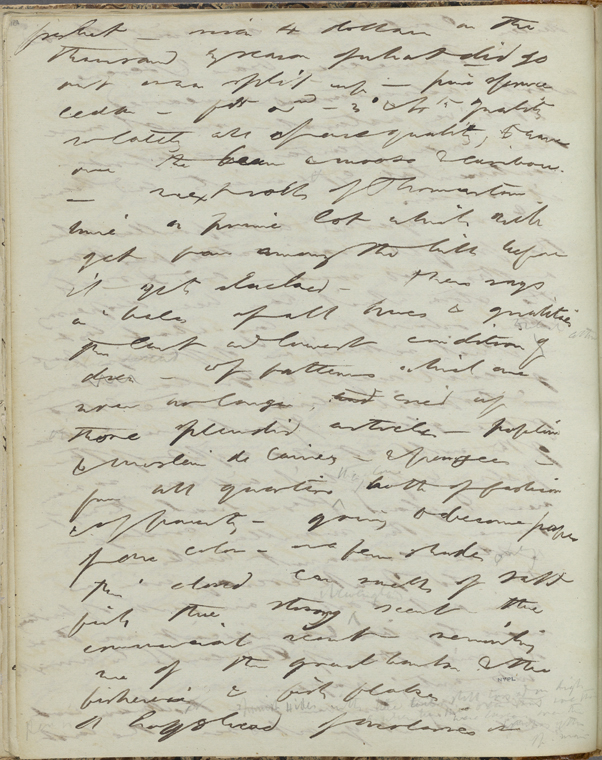 freshet — risen 4 dollars on the
thousand by reason of what did go
out or was split up — pine spruce
cedar — 1st 2nd — 3d & 4th quality
so lately all of one quality, to wave
over the bear & moose & caribou.
— next rolls of Thomaston
lime a prime lot which will
get far among the hills before
it gets slacked — These rags
in bales of all hues & qualities
the last and lowest condition of
dress — of patterns which are
now no longer cried up
those splendid articles — poplin
& muslin de laines —
from all quarters both of fashion
& poverty — going to become paper
of one color — or a few shades
this closed car smells of salt
fish the strong scent the
commercial scent — reminding
me of the grand banks & the
fisheries & fish flakes
A hogshead of molasses or